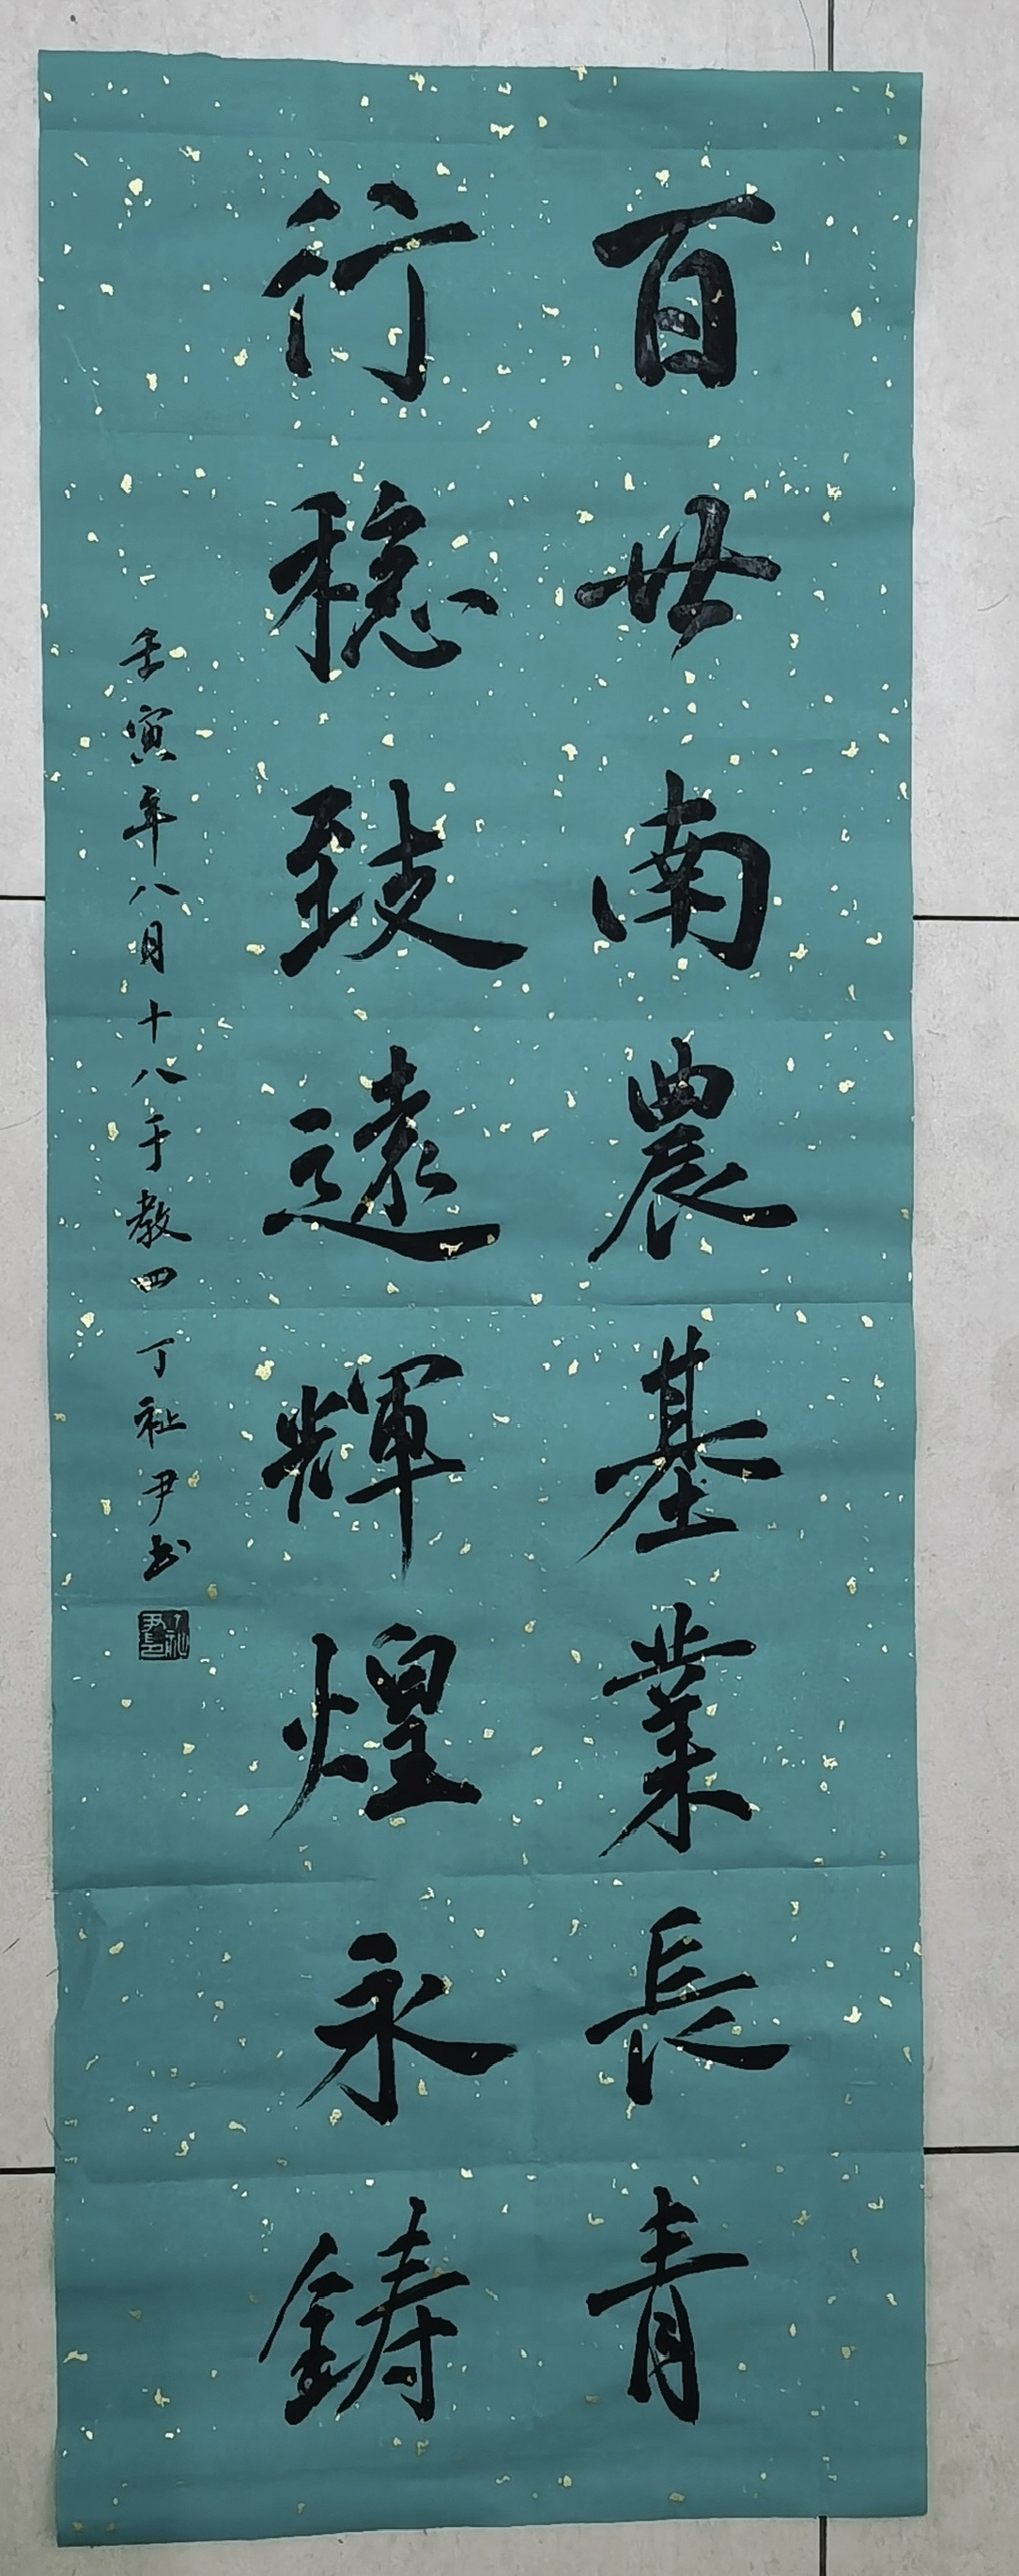 百世南農基業長青
行稳致遠輝煌永鑄
壬寅年八月十八于教四 丁祉尹书